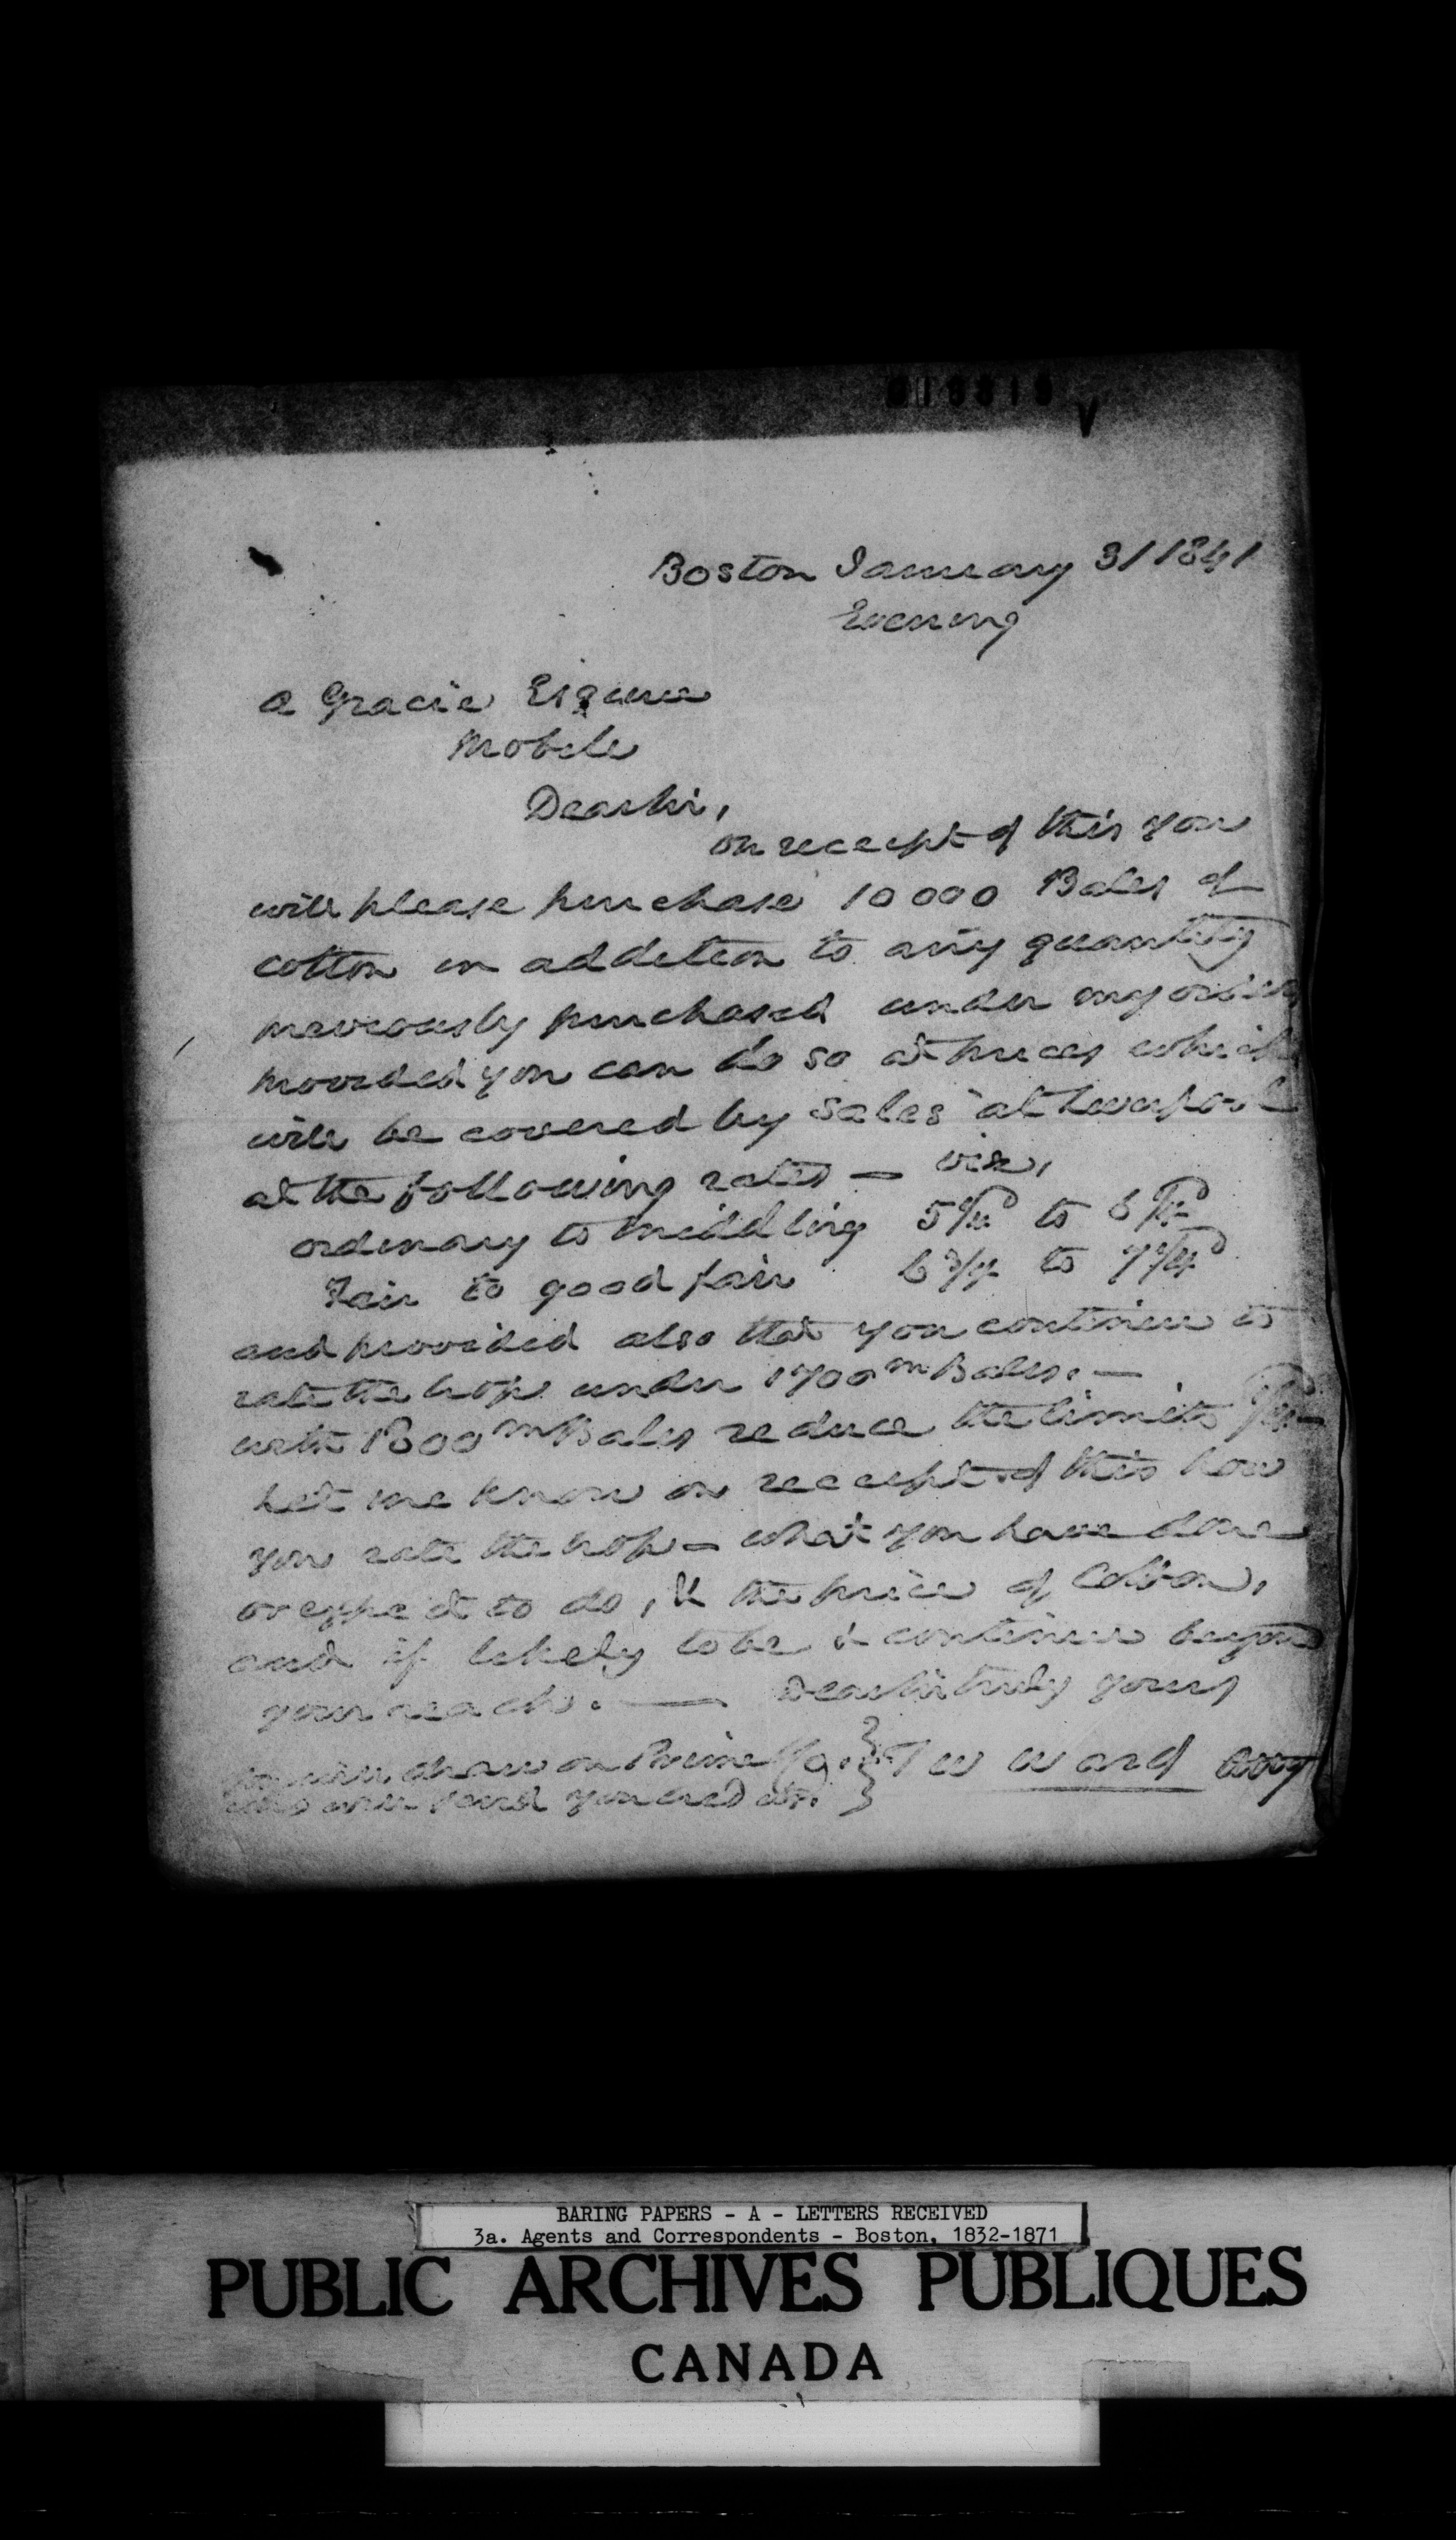 Boston January 31 1841
Evening
A Gracie Esquire
Mobile
Dear Sir,
On receipt of this you
will please purchase 10000 Bales of
cotton in addition to any quantity
previously purchased under my orders
provided you can do so at prices which
will be covered by sales at Liverpool
at the following rates — viz,
ordinary to middling 5 to 6
Fair to good fair 6 3/4 to 7
and provided also that you continue to
rate the crop under 1700 m Bales. —
with 1800 m Bales reduce the limits
Let me know on receipt of this how
you rate the crop — what you have done
or expect to do, & the price of Cotton,
and if likely to be & continue beyond
your reach. — Dear Sir truly yours
You will draw on Prime &Co. } T W Ward
who will send you credits. }
BARING PAPERS - A - LETTERS RECEIVED
3a. Agents and Correspondents - Boston, 1832-1871
PUBLIC ARCHIVES PUBLIQUES
CANADA